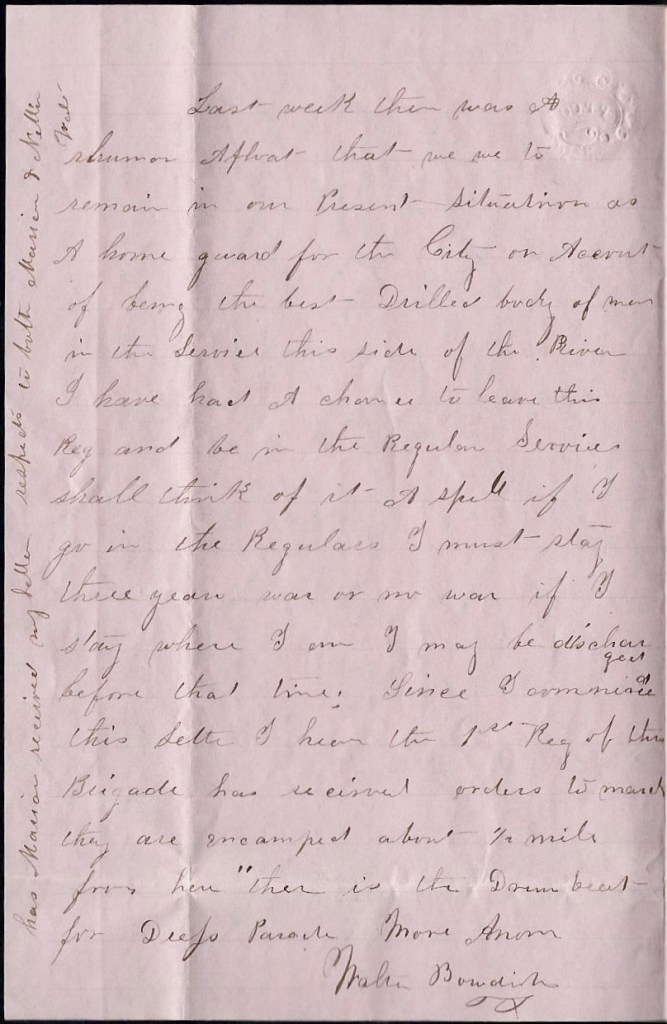 Last week then was A
rhumor Afloat that we we to
remain in our Present situation as
A home guard for the City on Account
of being the best Drilled body of men
in the Service this side of the River
I have had A chance to leave this
Reg and be in the Regular Service
shall think of it A spell if I
go in the Regulars I must stay
three years war or no war if I
stay where I am I may be dischar
ged
before that time. Since I commince
this Letter I hear the 1st Reg of this
Brigade has recieved orders to march
they are encamped about ½ mile
from here " there is the Drum beat
for Dress Parade More Anon
Walter Bowdish
has Marion received my letter respects to both Marion & Nellie